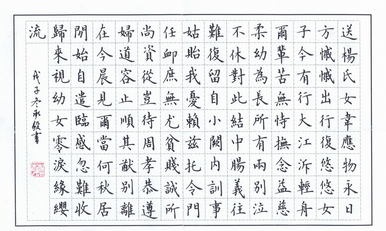 送楊氏女韋應物永日
方慽慽出行復悠悠女
子今有行大江泝輕舟
爾輩苦無恃撫念益慈
柔幼為長所育兩別泣
不休對此結中腸義往
難復留自小闕內訓事
姑貽我憂賴茲托令門
任卹庶無尤貧賤誠所
尚資從豈待周孝恭遵
婦道容止順其猷別離
在今晨見爾當何秋居
閒始自遣臨感忽難收
歸來視幼女零淚緣纓
流
戊子冬承書